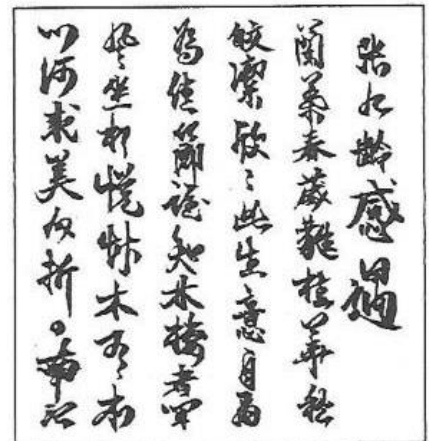 張九齡感遇
蘭葉春葳蕤桂華秋
皎潔欣〻此生意自爾
為佳節誰知林棲者聞
風坐相悅草木有本
心何求美人折